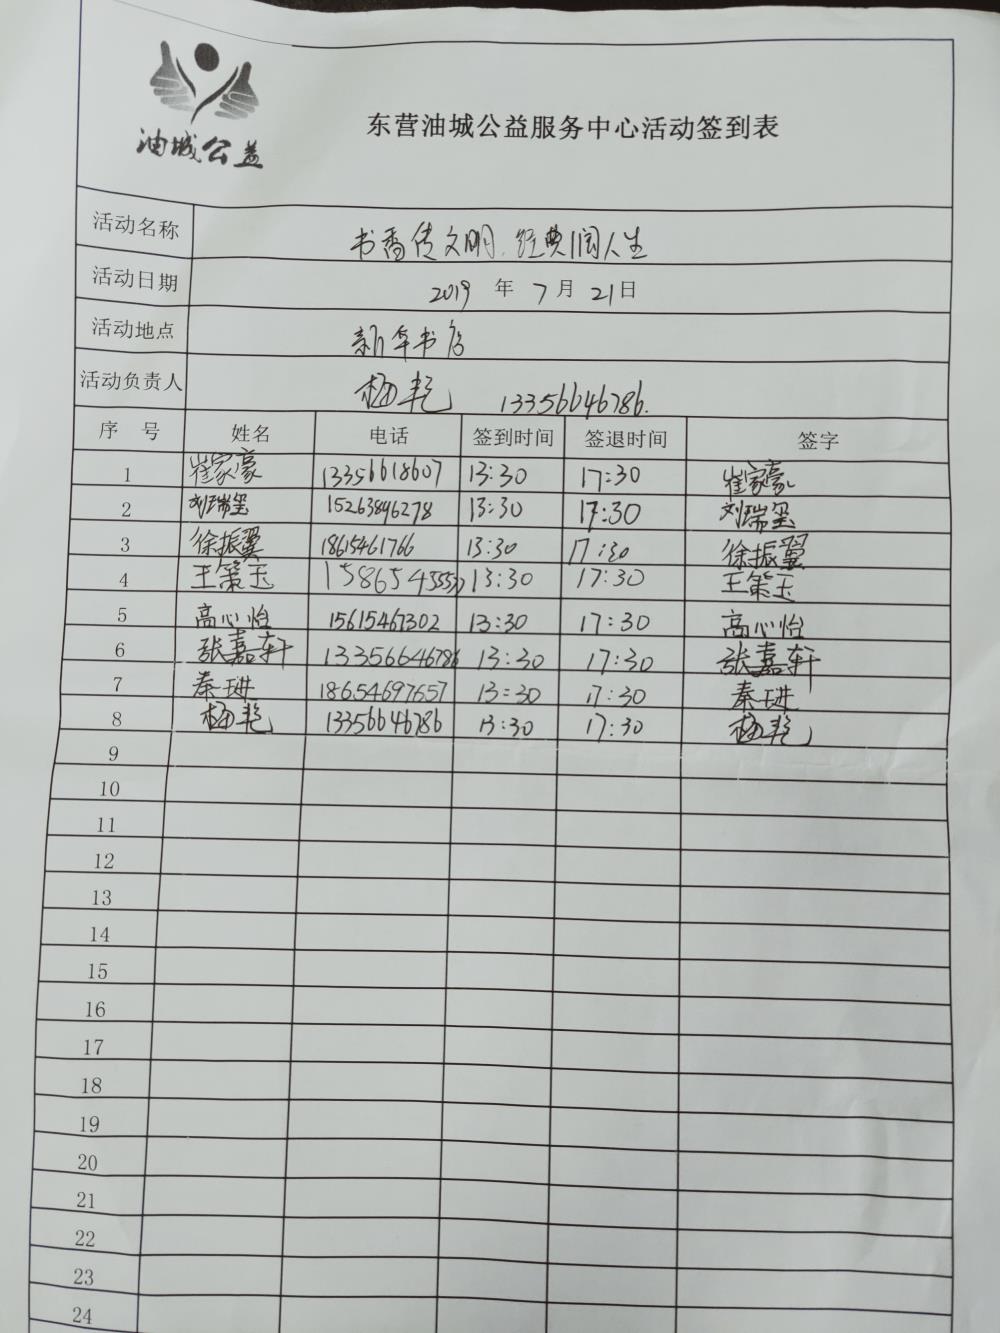 油城公益
东营油城公益服务中心活动签到表
活动名称 书香传文明.经典润人生
活动日期 2019 年 7 月 21 日
活动地点 新华书店
活动负责人 杨艳 13356646786.
序 号 姓名 电话 签到时间 签退时间 签字
1 崔家豪 13356618607 13:30 17:30 崔家豪
2 刘瑞玺 15263896278 13:30 17:30 刘瑞玺
3 徐振翼 18615461766 13:30 17:30 徐振翼
4 王策玉 13:30 17:30 王策玉
5 高心怡 15615467302 13:30 17:30 高心怡
6 张嘉轩 13356646786 13:30 17:30 张嘉轩
7 秦琎 18654697657 13:30 17:30 秦琎
8 杨艳 13356646786 13:30 17:30 杨艳
9
10
11
12
13
14
15
16
17
18
19
20
21
22
23
24